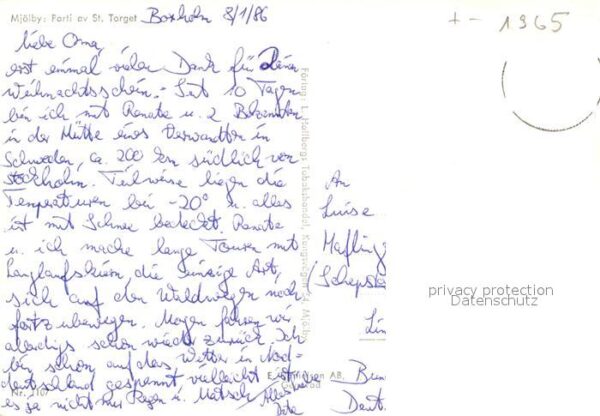 Mjölby: Parti av St. Torget Boxholm 8/1/86
+- 1965
liebe Oma,
erst einmal vielen Dank für Deinen
Weihnachtsschein. - Seit 10 Tagen
bin ich mit Renate u. 2 Bekannten
in der Hütte eines Verwandten in
Schweden, ca. 200 km südlich von
Stockholm. Teilweise liegen die
Temperaturen bei -20° u. alles
ist mit Schnee bedeckt. Renate
u. ich mache lange Touren mit
Langlaufskiern, die einzige Art,
sich auf den Waldwegen noch
fortzubewegen. Morgen fahren wir
allerdings schon wieder zurück. Ich
bin schon auf das Wetter in Nord-
deutschland gespannt, vielleicht ist
es ja nicht nur Regen u. Matsch
Alles Liebe
Förlag: L. Hallbergs Tobakshandel, Kungsvägen, Mjölby
AB,
Nr. 210
An
Luise
Mafling
(Scheps
Lin
Bun
Deut
privacy protection
Datenschutz